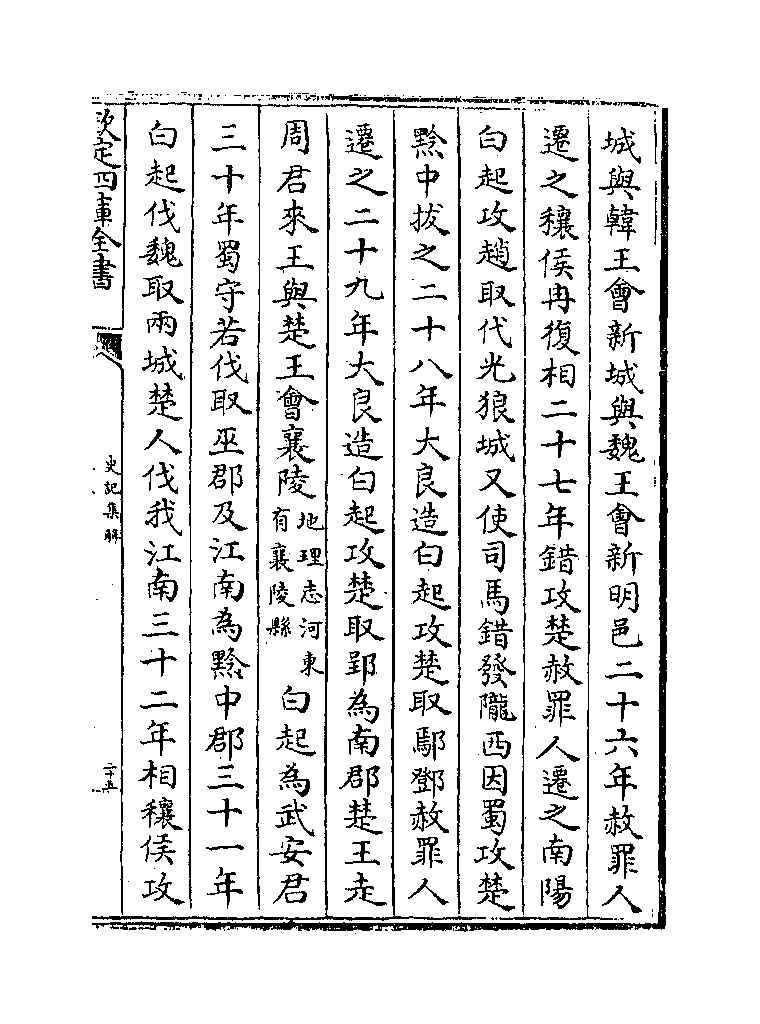 城與韓王會新城與魏王會新明邑二十六年赦罪人
遷之穰侯冉復相二十七年錯攻楚赦罪人遷之南陽
白起攻趙取代光狼城又使司馬錯發隴西因蜀攻楚
黔中拔之二十八年大良造白起攻楚取鄢鄧赦罪人
遷之二十九年大良造白起攻楚取郢為南郡楚王走
周君來王與楚王會襄陵地理志河東有襄陵縣白起為武安君
三十年蜀守若伐取巫郡及江南為黔中郡三十一年
白起伐魏取兩城楚人伐我江南三十二年相穰侯攻
欽定四庫全書
史記集解
二十五